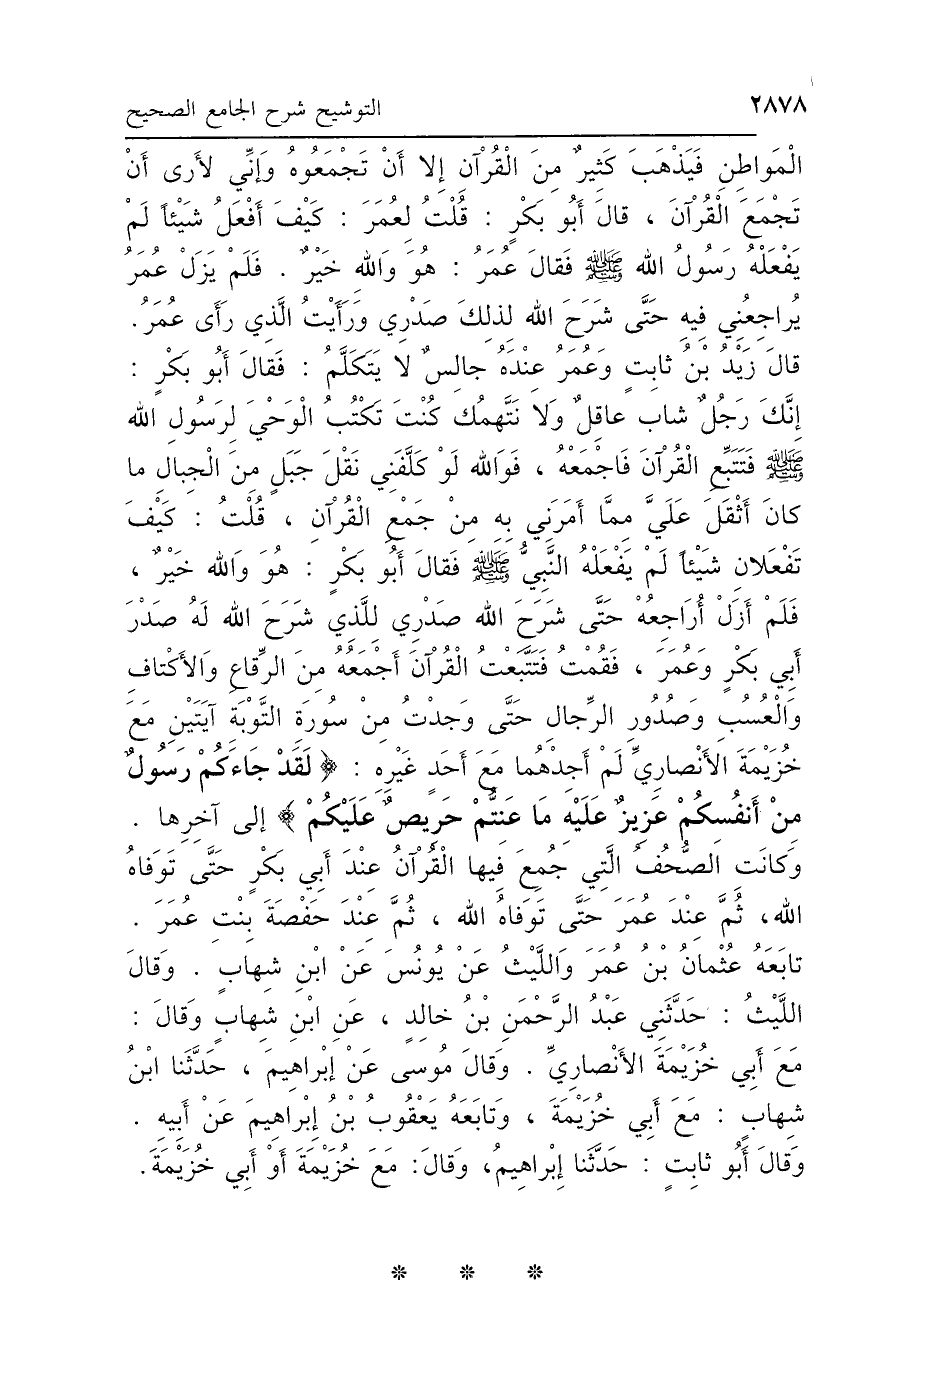 ٢٨٧٨
التوشيح شرح الجامع الصحيح
الْمَواطِنِ فَيَذْهَبَ كَثِيرٌ مِنَ الْقُرآنِ إلا أَنْ تَجْمَعُوهُ وَإِنِّي لأَرى أَنْ
تَجْمَعَ الْقُرآنَ ، قالَ أَبُو بَكْرٍ : قُلْتُ لِعُمَرَ : كَيْفَ أَفْعَلُ شَيْئاً لَمْ
يَفْعَلْهُ رَسُولُ الله ﷺ فَقالَ عُمَرُ : هُوَ وَالله خَيْرٌ . فَلَمْ يَزَلْ عُمَرُ
يُراجِعُنِي فِيهِ حَتَّى شَرَحَ الله لِذلِكَ صَدْرِي وَرَأَيْتُ الَّذِي رَأَى عُمَرُ.
قالَ زَيْدُ بْنُ ثابِتٍ وَعُمَرُ عِنْدَهُ جالِسٌ لا يَتَكَلَّمُ : فَقالَ أَبُو بَكْرٍ :
إِنَّكَ رَجُلٌ شاب عاقِلٌ وَلا نَتَّهِمُكَ كُنْتَ تَكْتُبُ الْوَحْيَ لِرَسُولِ الله
ﷺ فَتَتَبَّعِ الْقُرْآنَ فَاجْمَعْهُ ، فَوَالله لَوْ كَلَّفَنِي نَقْلَ جَبَلٍ مِنَ الْجِبالِ ما
كانَ أَثْقَلَ عَلَيَّ مِمَّا أَمَرَنِي بِهِ مِنْ جَمْعِ الْقُرْآنِ ، قُلْتُ : كَيْفَ
تَفْعَلانِ شَيْئاً لَمْ يَفْعَلْهُ النَّبِيُّ ﷺ فَقالَ أَبُو بَكْرٍ : هُوَ وَالله خَيْرٌ ،
فَلَمْ أَزَلْ أُرَاجِعُهُ حَتَّى شَرَحَ الله صَدْرِي لِلَّذِي شَرَحَ الله لَهُ صَدْرَ
أَبِي بَكْرٍ وَعُمَرَ ، فَقُمْتُ فَتَتَبَّعْتُ الْقُرْآنَ أَجْمَعُهُ مِنَ الرِّقاعِ وَالأَكْتافِ
وَالْعُسُبِ وَصُدُورِ الرِّجالِ حَتَّى وَجَدْتُ مِنْ سُورَةِ التَّوْبَةِ آيَتَيْنِ مَعَ
خُزَيْمَةَ الأَنْصارِيِّ لَمْ أَجِدْهُما مَعَ أَحَدٍ غَيْرِهِ : ﴿ لَقَدْ جَاءَكُمْ رَسُولٌ
مِنْ أَنفُسِكُمْ عَزِيزٌ عَلَيْهِ مَا عَنِتُّمْ حَرِيصٌ عَلَيْكُمْ ﴾ إلى آخِرِها .
وَكانَتِ الصُّحُفُ الَّتِي جُمِعَ فِيها الْقُرْآنُ عِنْدَ أَبِي بَكْرٍ حَتَّى تَوَفاهُ
الله، ثُمَّ عِنْدَ عُمَرَ حَتَّى تَوَفاهُ الله ، ثُمَّ عِنْدَ حَفْصَةَ بِنْتِ عُمَرَ .
تابَعَهُ عُثْمانُ بْنُ عُمَرَ وَاللَّيْثُ عَنْ يُونُسَ عَنْ ابْنِ شِهابٍ . وَقالَ
اللَّيْثُ : حَدَّثَنِي عَبْدُ الرَّحْمَنِ بْنُ خالِدٍ ، عَنِ ابْنِ شِهابٍ وَقالَ :
مَعَ أَبِي خُزَيْمَةَ الأَنْصارِيِّ . وَقالَ مُوسى عَنْ إِبْراهِيمَ ، حَدَّثَنا ابْنُ
شِهابٍ : مَعَ أَبِي خُزَيْمَةَ ، وَتابَعَهُ يَعْقُوبُ بْنُ إِبْراهِيمَ عَنْ أَبِيهِ .
وَقالَ أَبُو ثابِتٍ : حَدَّثَنا إِبْراهِيمُ، وَقالَ: مَعَ خُزَيْمَةَ أَوْ أَبِي خُزَيْمَةَ.
* * *